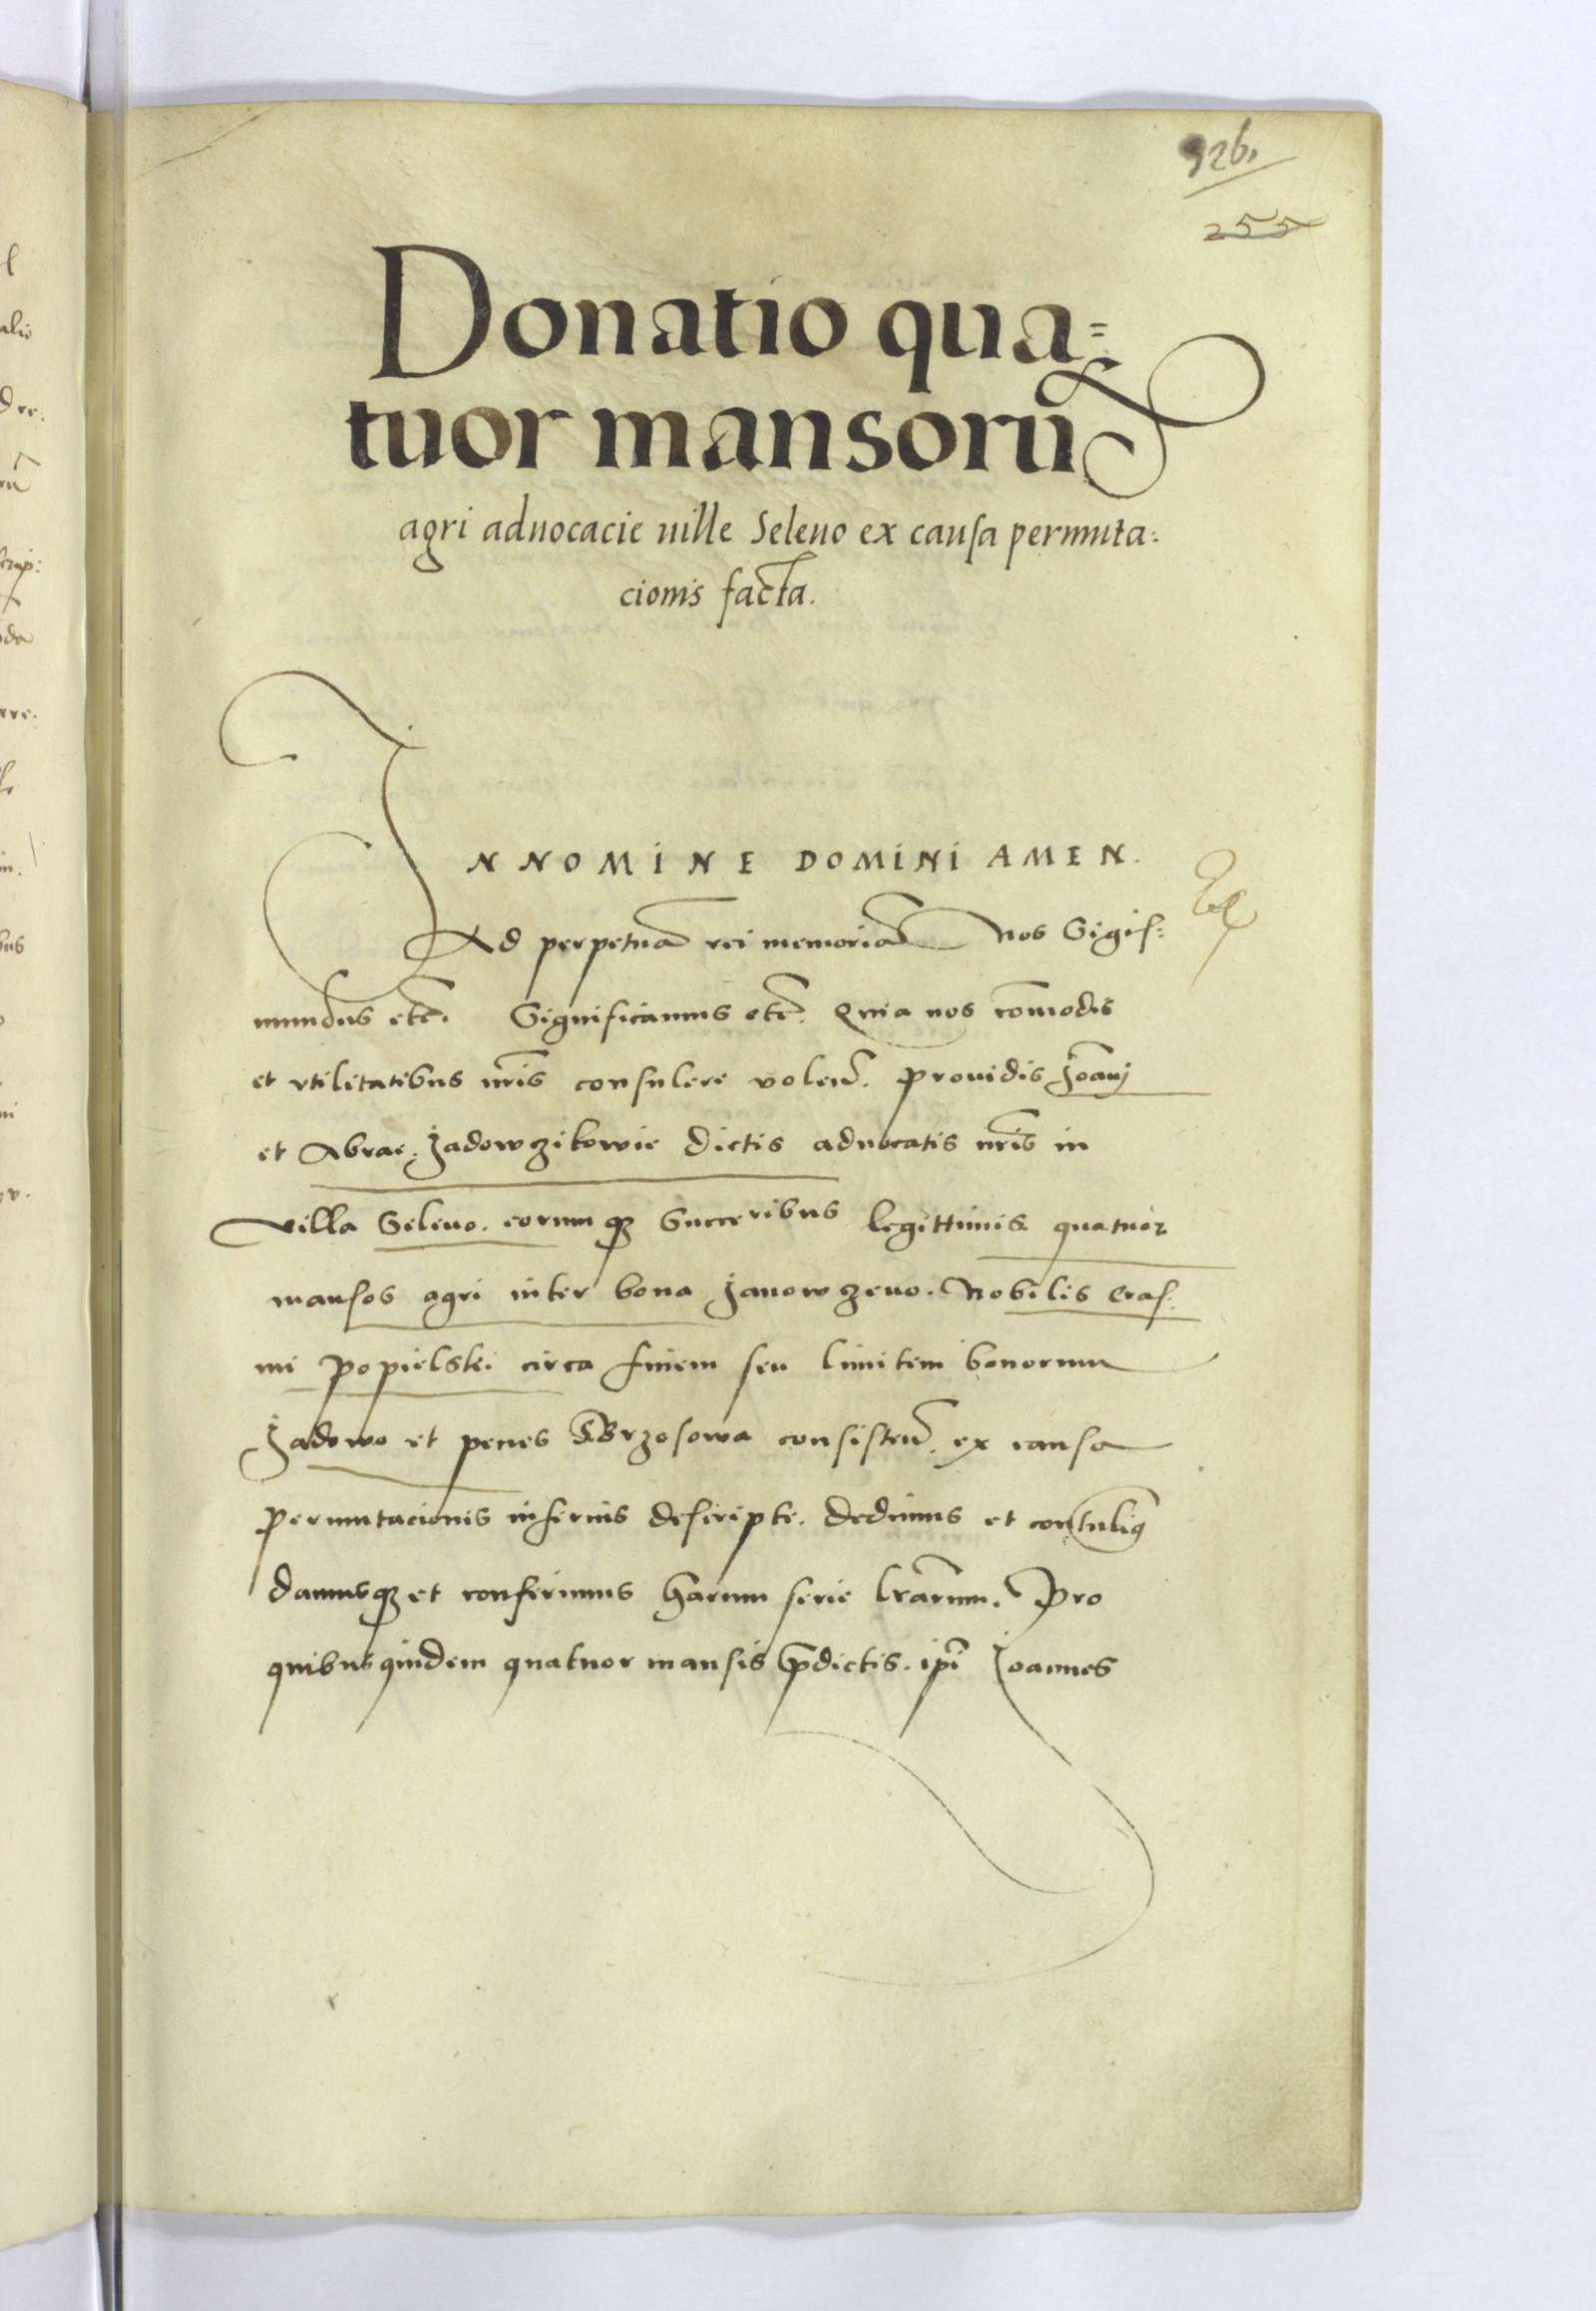 926.
255
Donatio qua=
tuor mansorũ
agri aduocacie uille Seleuo ex causa permuta:
cionis facta.
IN NOMINE DOMINI AMEN.
Ad perpetuã rei memoriã Nos Sigis=
mundus etc̃. Significamus etc̃. Quia nos com̃odis
et vtilitatibus nr̃is consulere volen̄. prouidis Joãnj
et Abrae. Jadowzikowie dictis aduocatis nr̃is in
villa Seleuo. eorumqȝ Succeribus legittimis quatuor
mansos agri inter bona Janowzeno. Nobilis Eras=
mi Popielski circa finem seu limitem bonorum
Jadowo et penes Brzosowa consisten̄. ex causa
permutacionis inferius descripte. dedimus et contulimꝰ
damusqȝ et conferimus harum serie lr̃arum. Pro
quibus quidem quatuor mansis p̃dictis. ip̃i Joannes